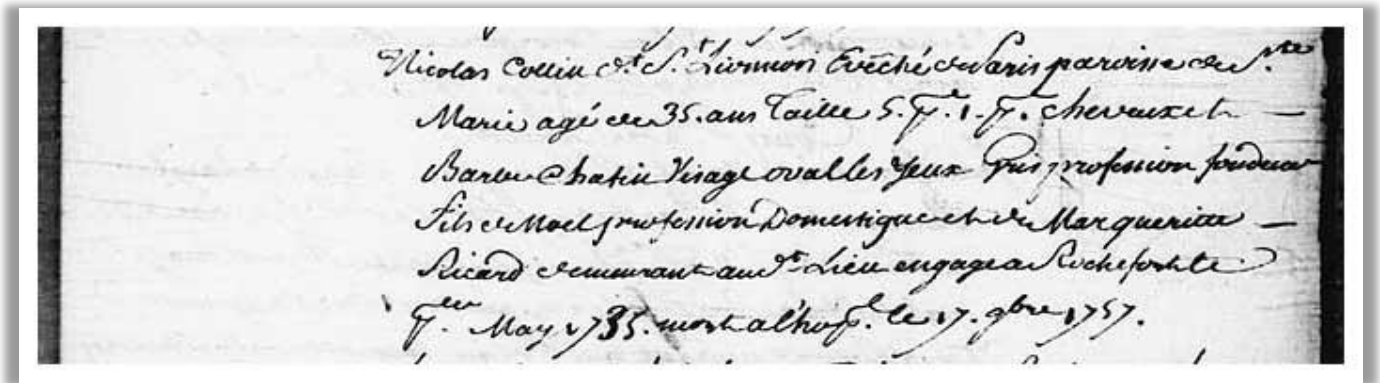 Nicolas Collin dt. St. Livourion Evêché de Paris paroisse de Ste
Marie agé de 35. ans taille 5. p. 1. p. cheveux et
Barbe Chatin Visage ovalle les yeux Gris profession fondeur
fils de Noel profession Domestique et de Margueritte
Ricard demeurant au dt. Lieu engagé a Rochefort le
May 1735. mort a lhopl. le 17. 9bre 1757.